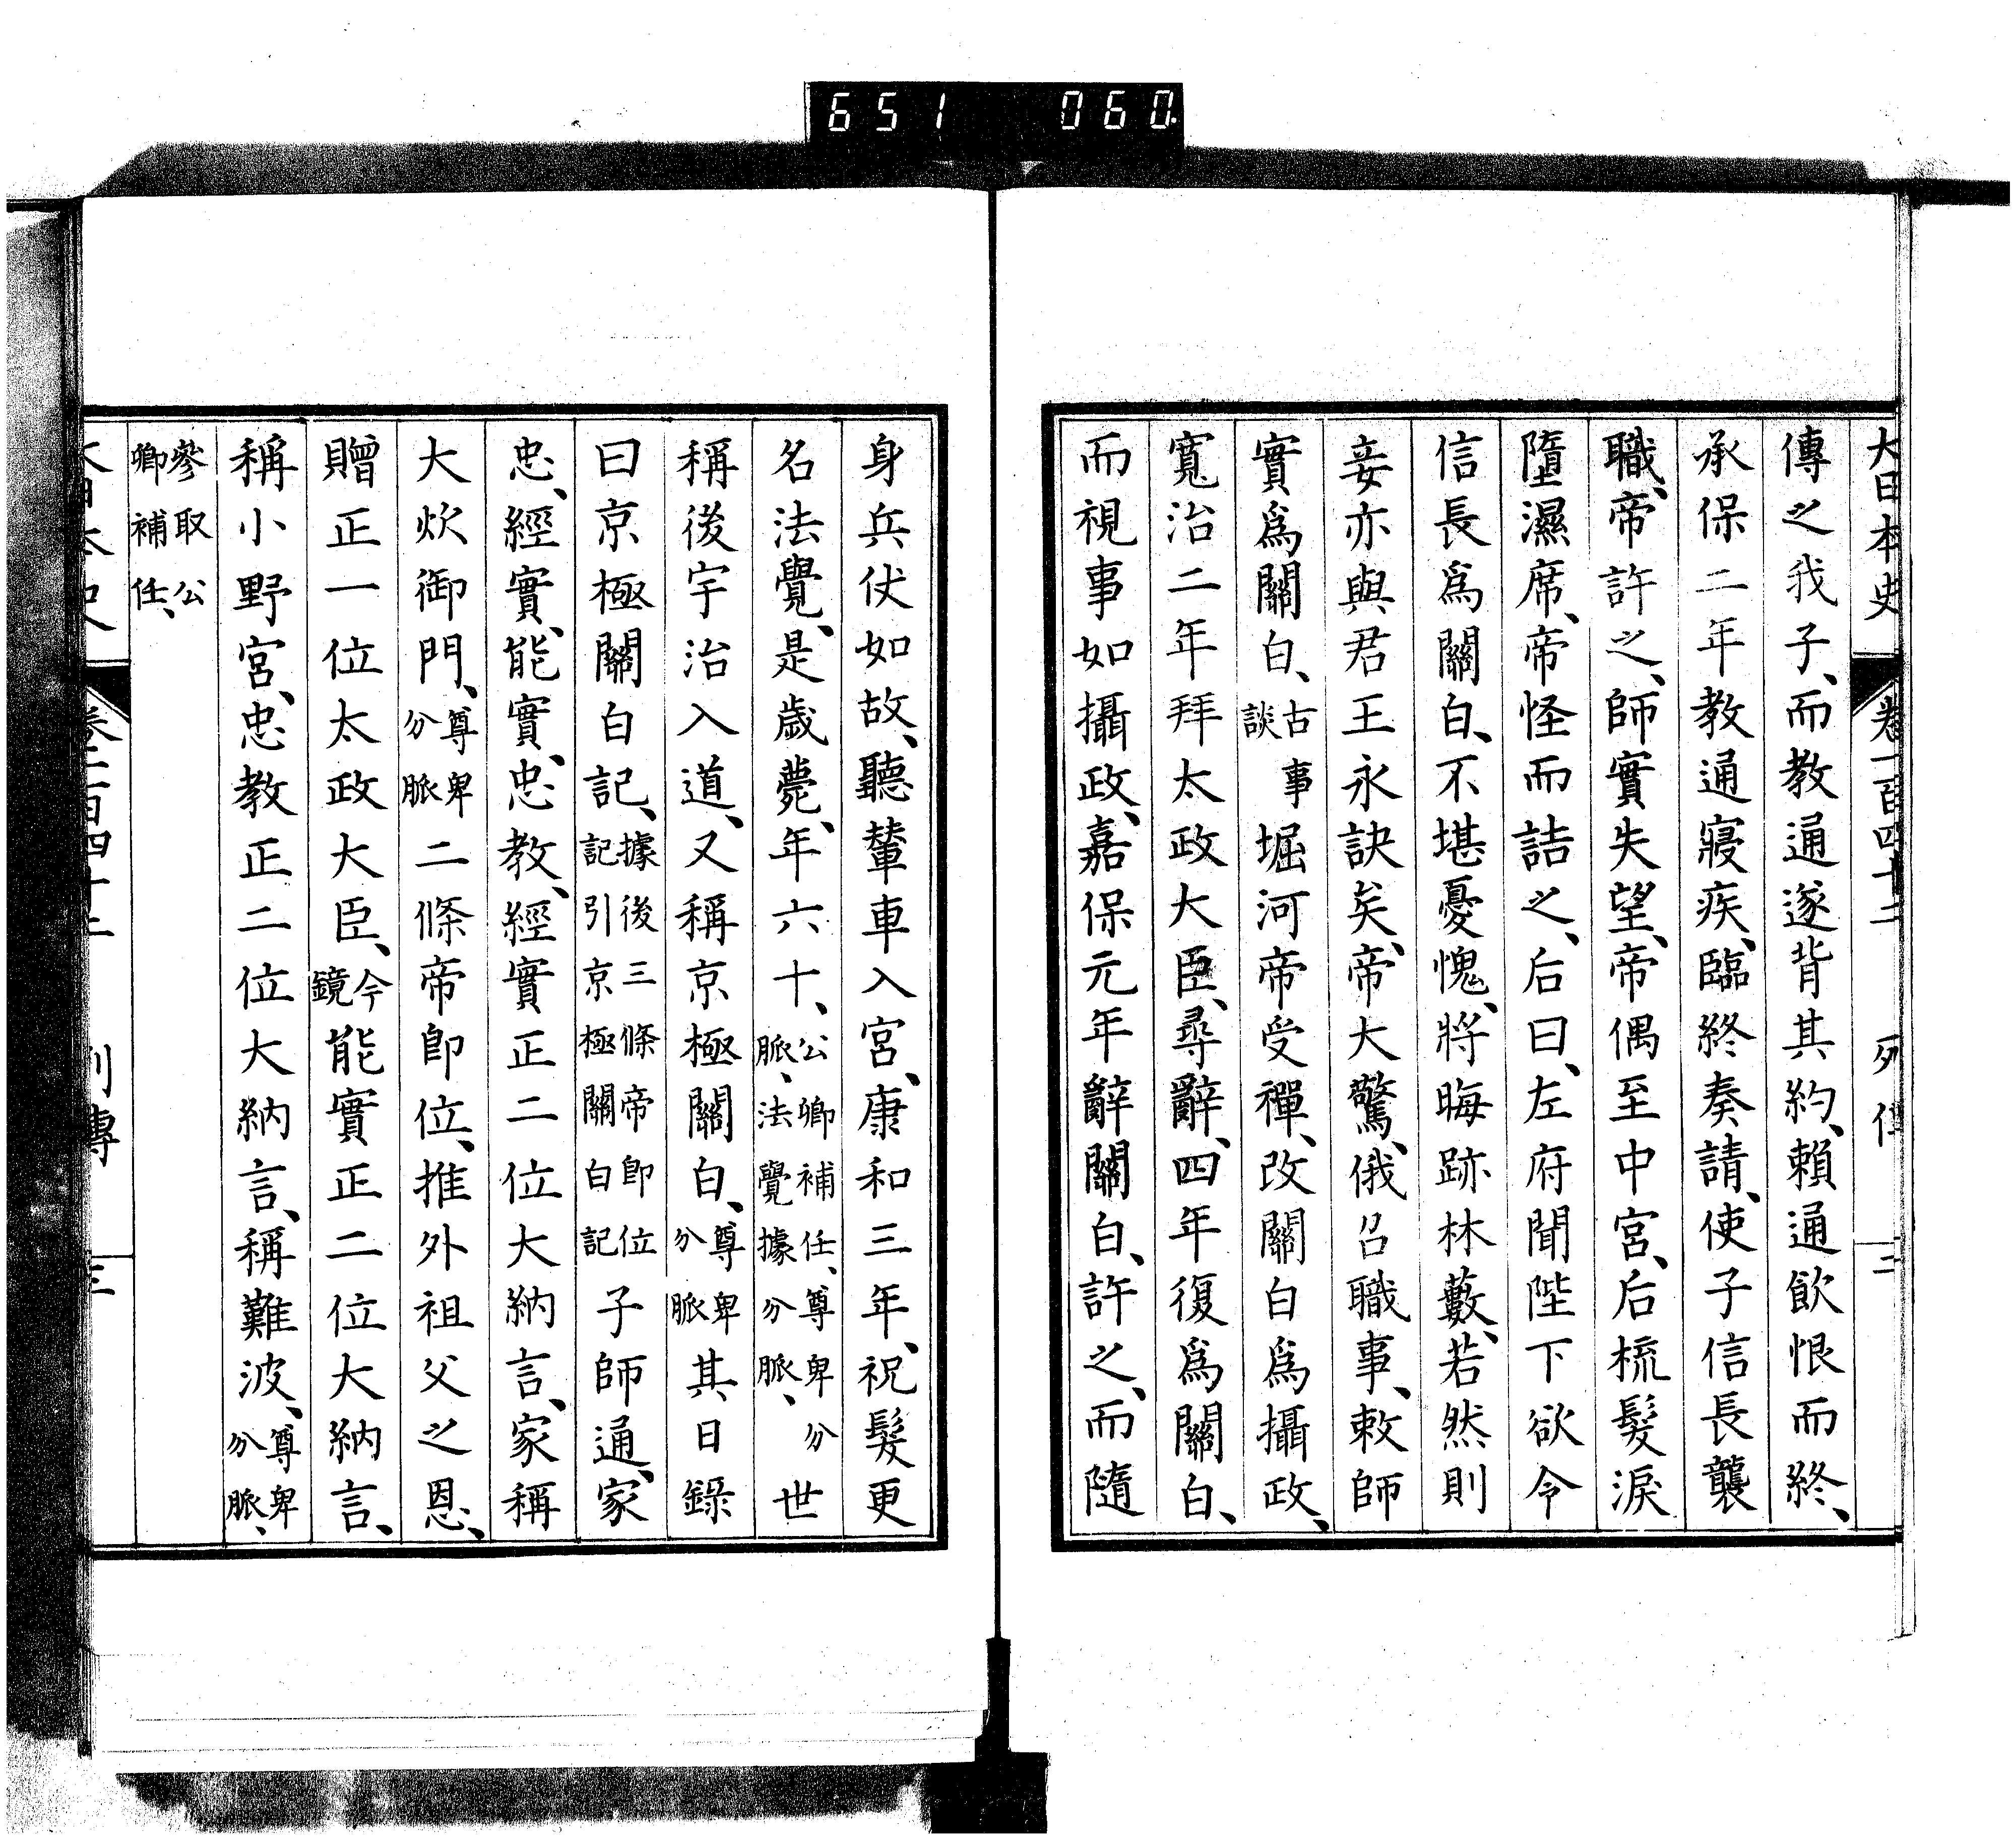 651 060
大日本史 卷一百四十二 列傳 三
傳之我子、而教通遂背其約、賴通飲恨而終、
承保二年教通寢疾、臨終奏請、使子信長襲
職、帝許之、師實失望、帝偶至中宮、后梳髮淚
墮濕席、帝怪而詰之、后曰、左府聞陛下欲令
信長爲關白、不堪憂愧、將晦跡林藪、若然則
妾亦與君王永訣矣、帝大驚、俄召職事、敕師
實爲關白、古事談堀河帝受禪、改關白爲攝政、
寬治二年拜太政大臣、尋辭、四年復爲關白、
而視事如攝政、嘉保元年辭關白、許之、而隨
身兵仗如故、聽輦車入宮、康和三年、祝髮更
名法覺、是歲薨、年六十、公卿補任、尊卑分脈、法覺據分脈、世
稱後宇治入道、又稱京極關白、尊卑分脈其日錄
曰京極關白記、據後三條帝卽位記引京極關白記子師通、家
忠、經實、能實、忠教、經實正二位大納言、家稱
大炊御門、尊卑分脈二條帝卽位、推外祖父之恩、
贈正一位太政大臣、今鏡能實正二位大納言、
稱小野宮、忠教正二位大納言、稱難波、尊卑分脈、
參取公卿補任、
大日本史 卷一百四十二 列傳 三